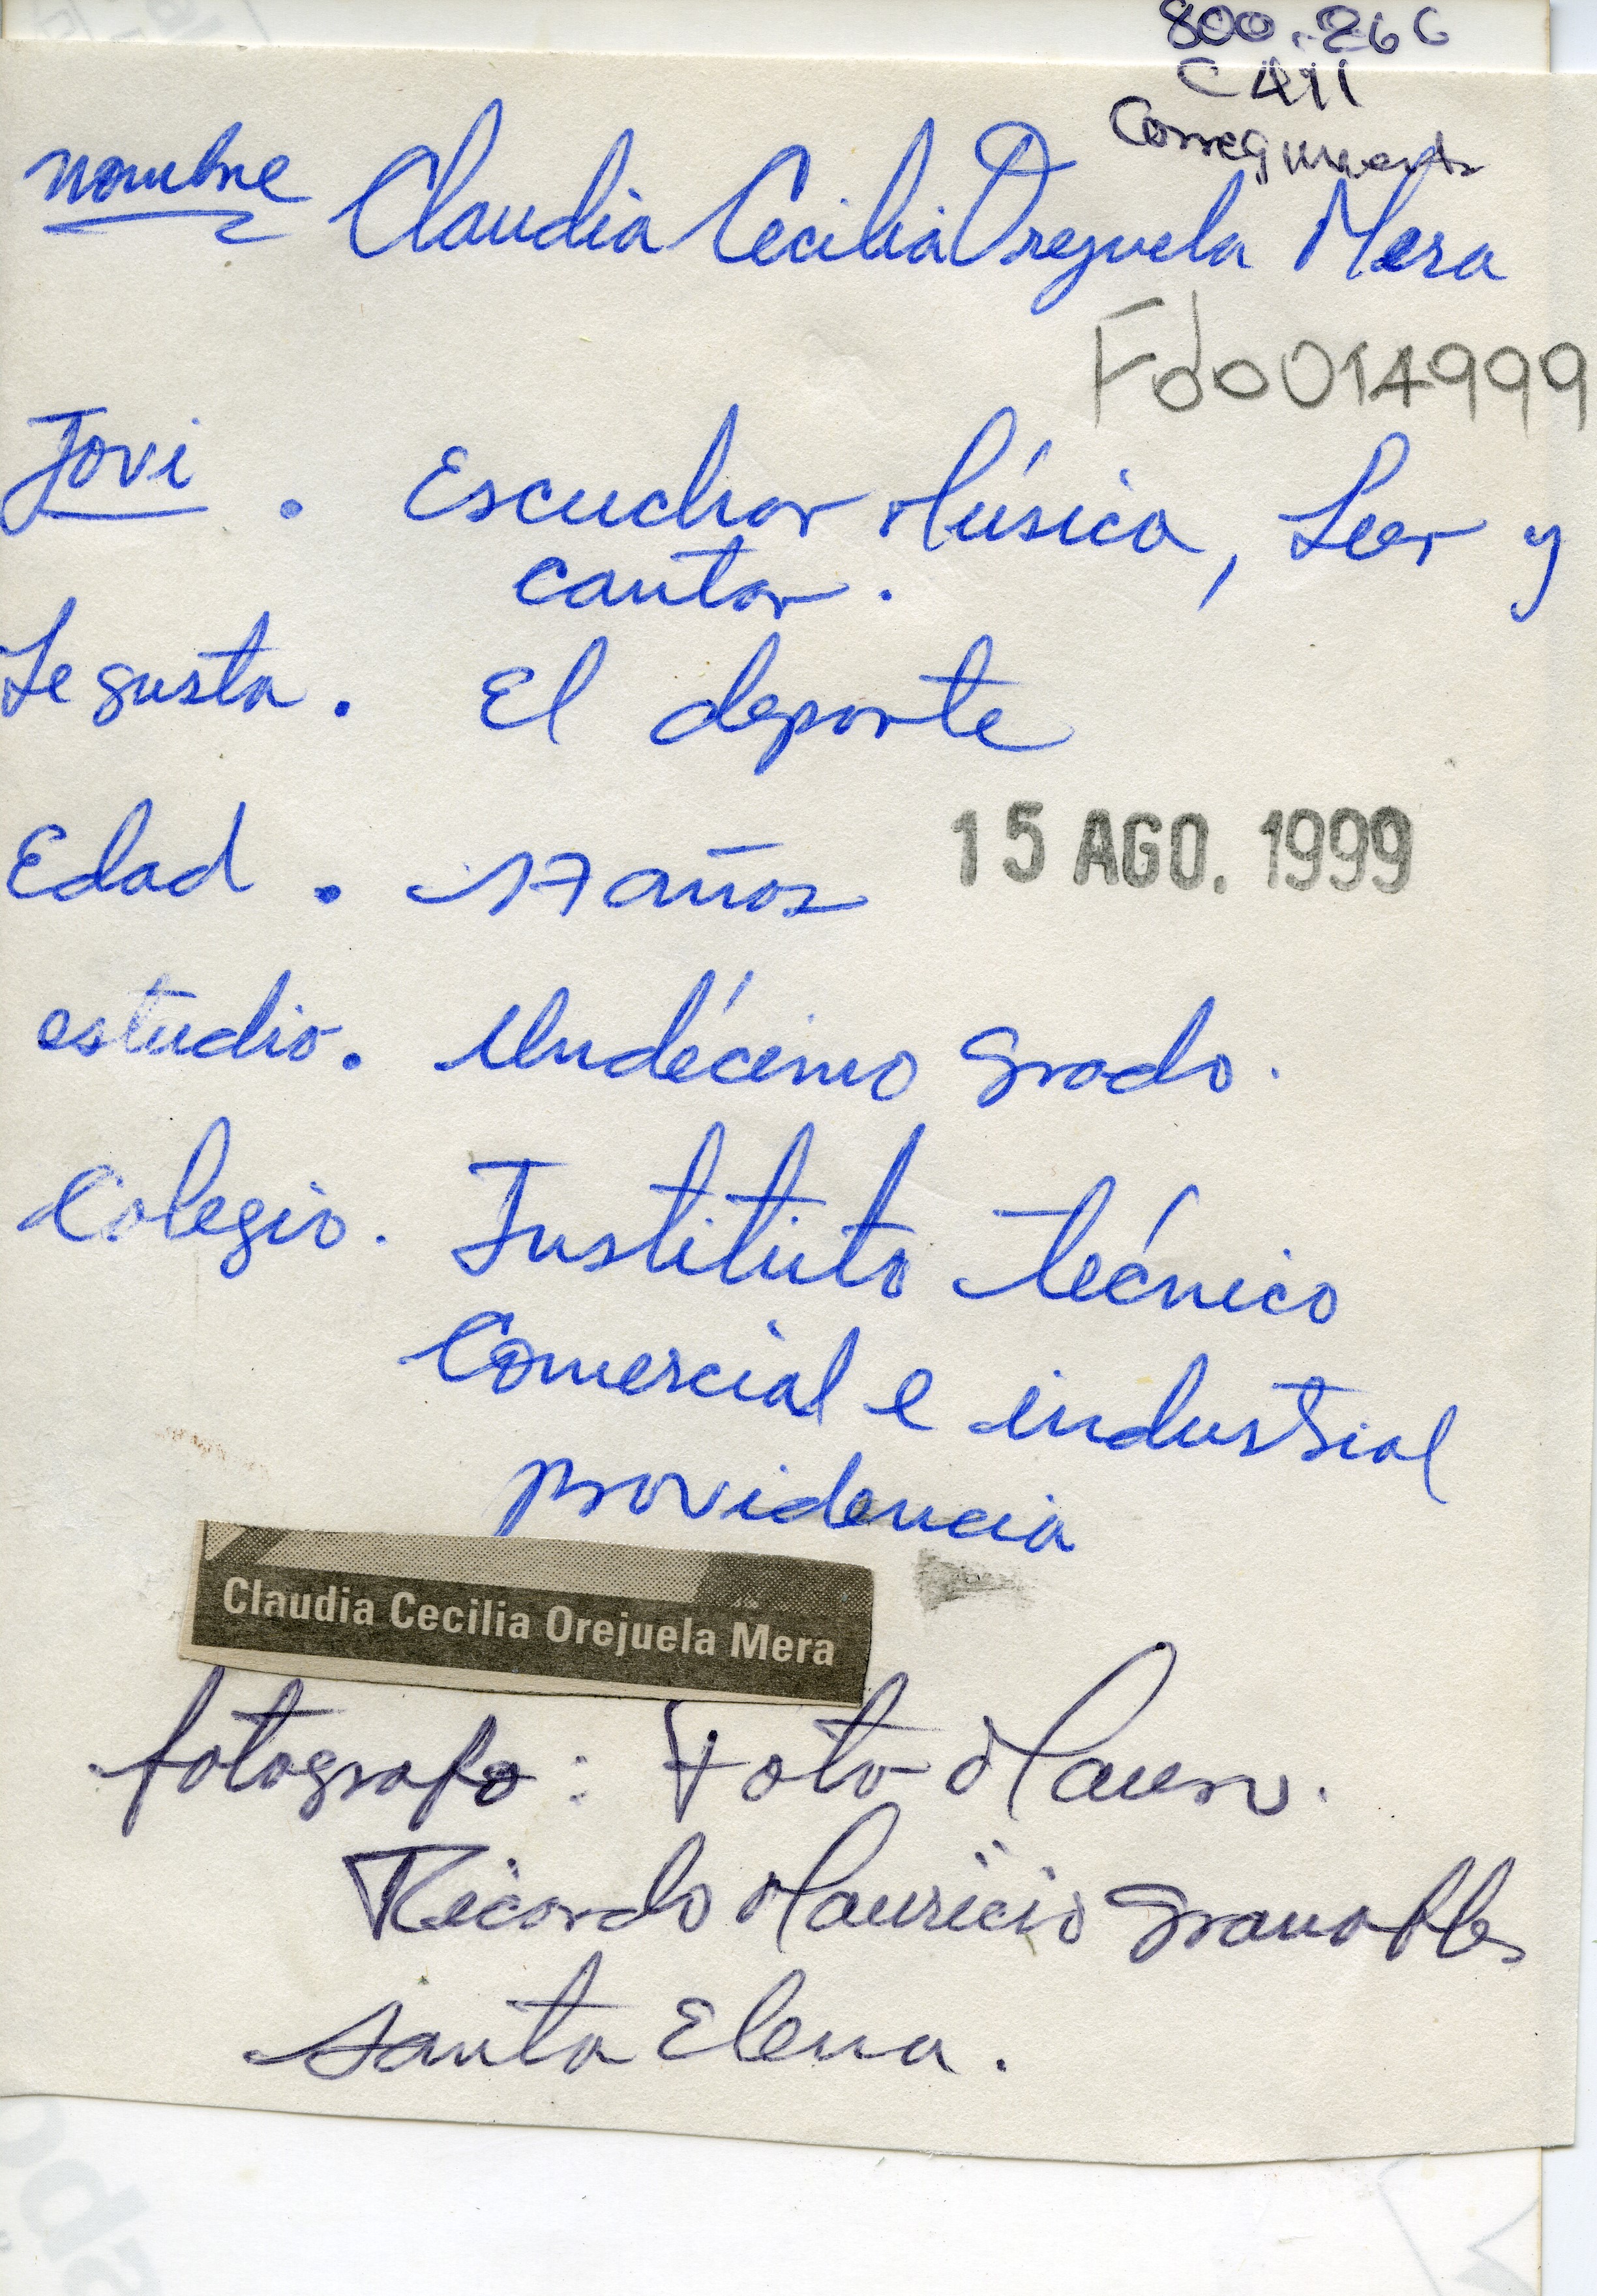 800-266
CALI
Corregimiento
nombre Claudia Cecilia Orejuela Mera
Fdo 014999
Jovi . Escuchar Música, Leer y
cantar.
Le gusta. El deporte
Edad . 17 años
15 AGO. 1999
estudio. Undécimo grado.
Colegio. Instituto técnico
Comercial e industrial
providencia
Claudia Cecilia Orejuela Mera
fotografo: Foto Mauro.
Ricardo Mauricio Granobles
Santa Elena.